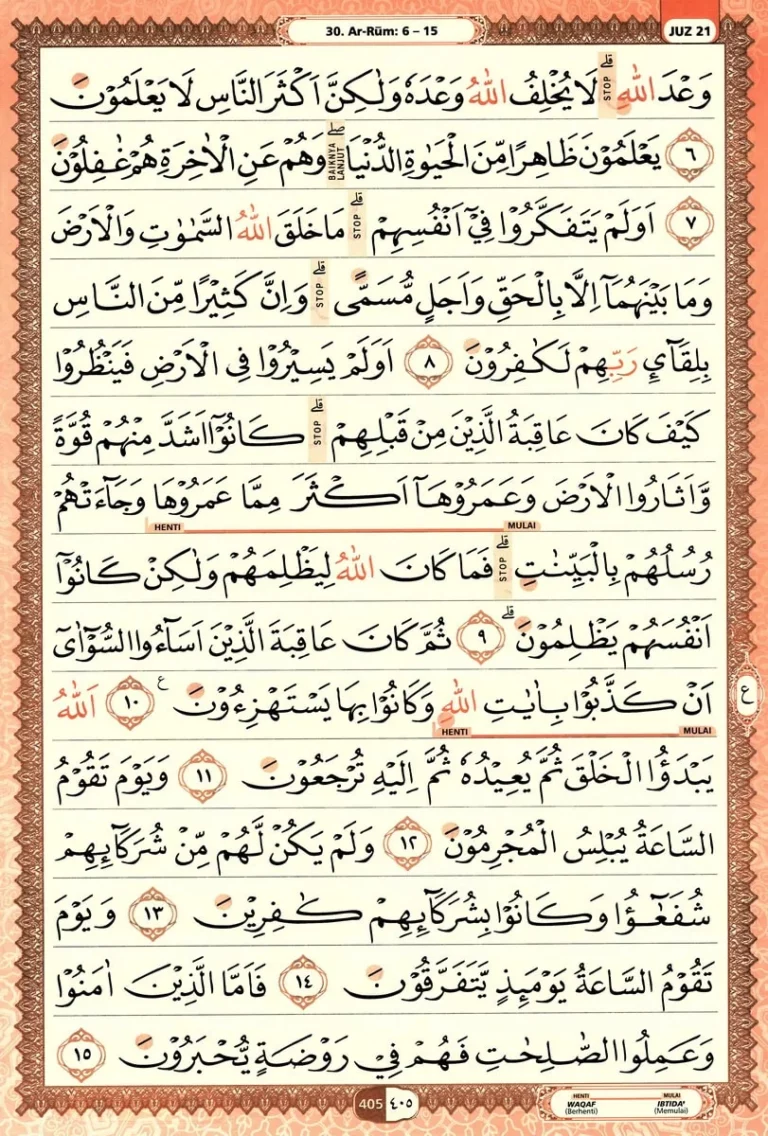 30. Ar-Rūm: 6 – 15
JUZ 21
وَعْدَ اللّٰهِ ۗ لَا يُخْلِفُ اللّٰهُ وَعْدَهٗ وَلٰكِنَّ اَكْثَرَ النَّاسِ لَا يَعْلَمُوْنَ
STOP
٦ يَعْلَمُوْنَ ظَاهِرًا مِّنَ الْحَيٰوةِ الدُّنْيَا ۖ وَهُمْ عَنِ الْاٰخِرَةِ هُمْ غٰفِلُوْنَ
BAIKNYA LANJUT
٧ اَوَلَمْ يَتَفَكَّرُوْا فِيْٓ اَنْفُسِهِمْ ۗ مَا خَلَقَ اللّٰهُ السَّمٰوٰتِ وَالْاَرْضَ
STOP
وَمَا بَيْنَهُمَآ اِلَّا بِالْحَقِّ وَاَجَلٍ مُّسَمًّى ۗ وَاِنَّ كَثِيْرًا مِّنَ النَّاسِ
STOP
بِلِقَاۤئِ رَبِّهِمْ لَكٰفِرُوْنَ ٨ اَوَلَمْ يَسِيْرُوْا فِى الْاَرْضِ فَيَنْظُرُوْا
كَيْفَ كَانَ عَاقِبَةُ الَّذِيْنَ مِنْ قَبْلِهِمْ ۗ كَانُوْٓا اَشَدَّ مِنْهُمْ قُوَّةً
STOP
وَّاَثَارُوا الْاَرْضَ وَعَمَرُوْهَآ اَكْثَرَ مِمَّا عَمَرُوْهَا وَجَاۤءَتْهُمْ
MULAI
HENTI
رُسُلُهُمْ بِالْبَيِّنٰتِ ۗ فَمَا كَانَ اللّٰهُ لِيَظْلِمَهُمْ وَلٰكِنْ كَانُوْٓا
STOP
اَنْفُسَهُمْ يَظْلِمُوْنَ ۗ ٩ ثُمَّ كَانَ عَاقِبَةَ الَّذِيْنَ اَسَاۤءُوا السُّوْۤاٰىٓ
اَنْ كَذَّبُوْا بِاٰيٰتِ اللّٰهِ وَكَانُوْا بِهَا يَسْتَهْزِءُوْنَ ࣖ ١٠ اَللّٰهُ
ع
MULAI
HENTI
يَبْدَؤُا الْخَلْقَ ثُمَّ يُعِيْدُهٗ ثُمَّ اِلَيْهِ تُرْجَعُوْنَ ١١ وَيَوْمَ تَقُوْمُ
السَّاعَةُ يُبْلِسُ الْمُجْرِمُوْنَ ١٢ وَلَمْ يَكُنْ لَّهُمْ مِّنْ شُرَكَاۤىِٕهِمْ
شُفَعٰۤؤُا وَكَانُوْا بِشُرَكَاۤىِٕهِمْ كٰفِرِيْنَ ١٣ وَيَوْمَ
تَقُوْمُ السَّاعَةُ يَوْمَىِٕذٍ يَّتَفَرَّقُوْنَ ١٤ فَاَمَّا الَّذِيْنَ اٰمَنُوْا
وَعَمِلُوا الصّٰلِحٰتِ فَهُمْ فِيْ رَوْضَةٍ يُّحْبَرُوْنَ ١٥
405 ٤٠٥
HENTI MULAI
WAQAF IBTIDA'
(Berhenti) (Memulai)